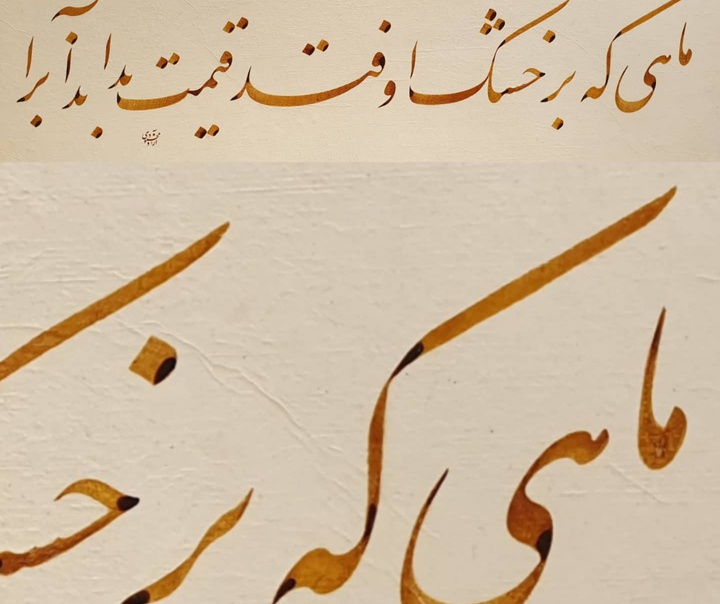 ماهی که بر خشک اوفتد قیمت بداند آب را
ماهی که بر